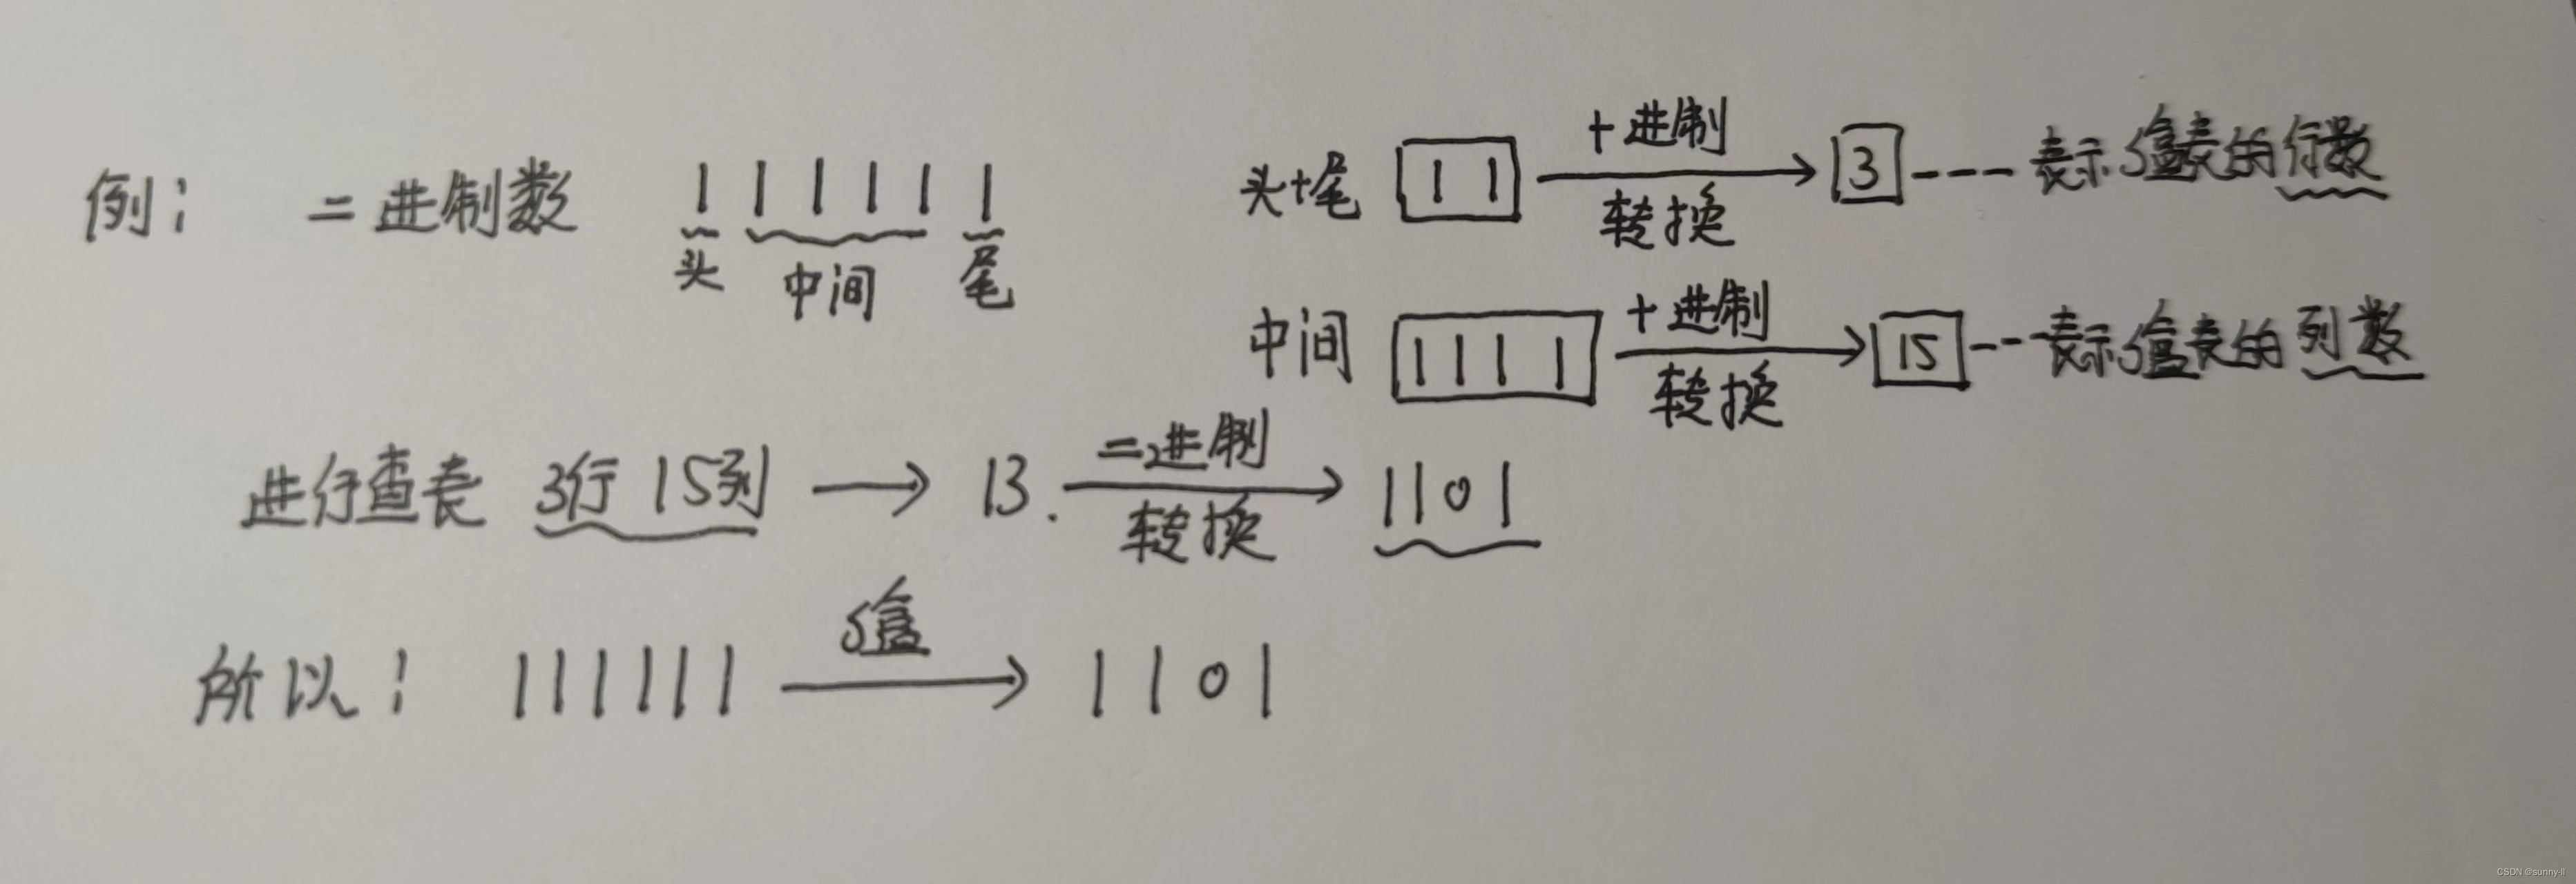 例： 二进制数 1 1 1 1 1 1
头 中间 尾
头+尾 11 十进制 转换 3 --- 表示S盒表的行数
中间 1111 十进制 转换 15 --- 表示S盒表的列数
进行查表 3行 15列 → 13. 二进制 转换 1101
所以： 111111 S盒 → 1101
CSDN @sunny-ll